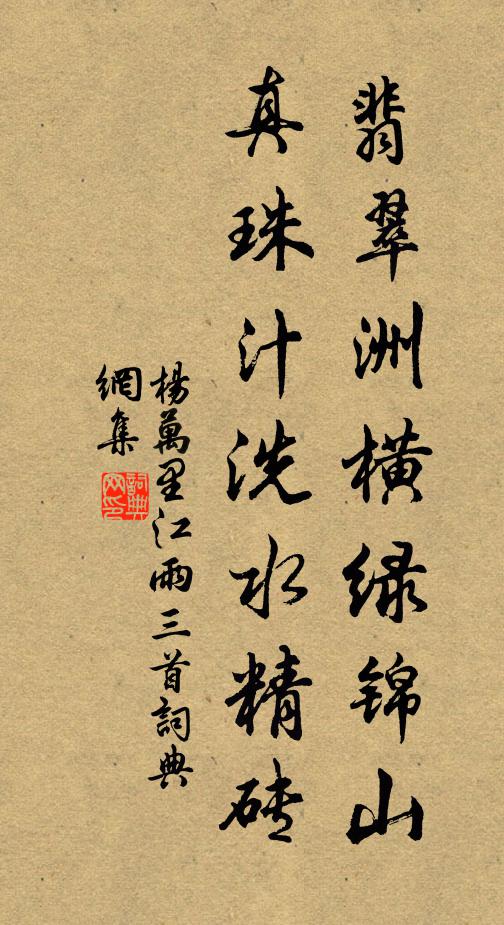 翡翠洲横绿锦山
真珠汁洗水精砖
楊萬里江雨三首詞典
網集
詞典
网印